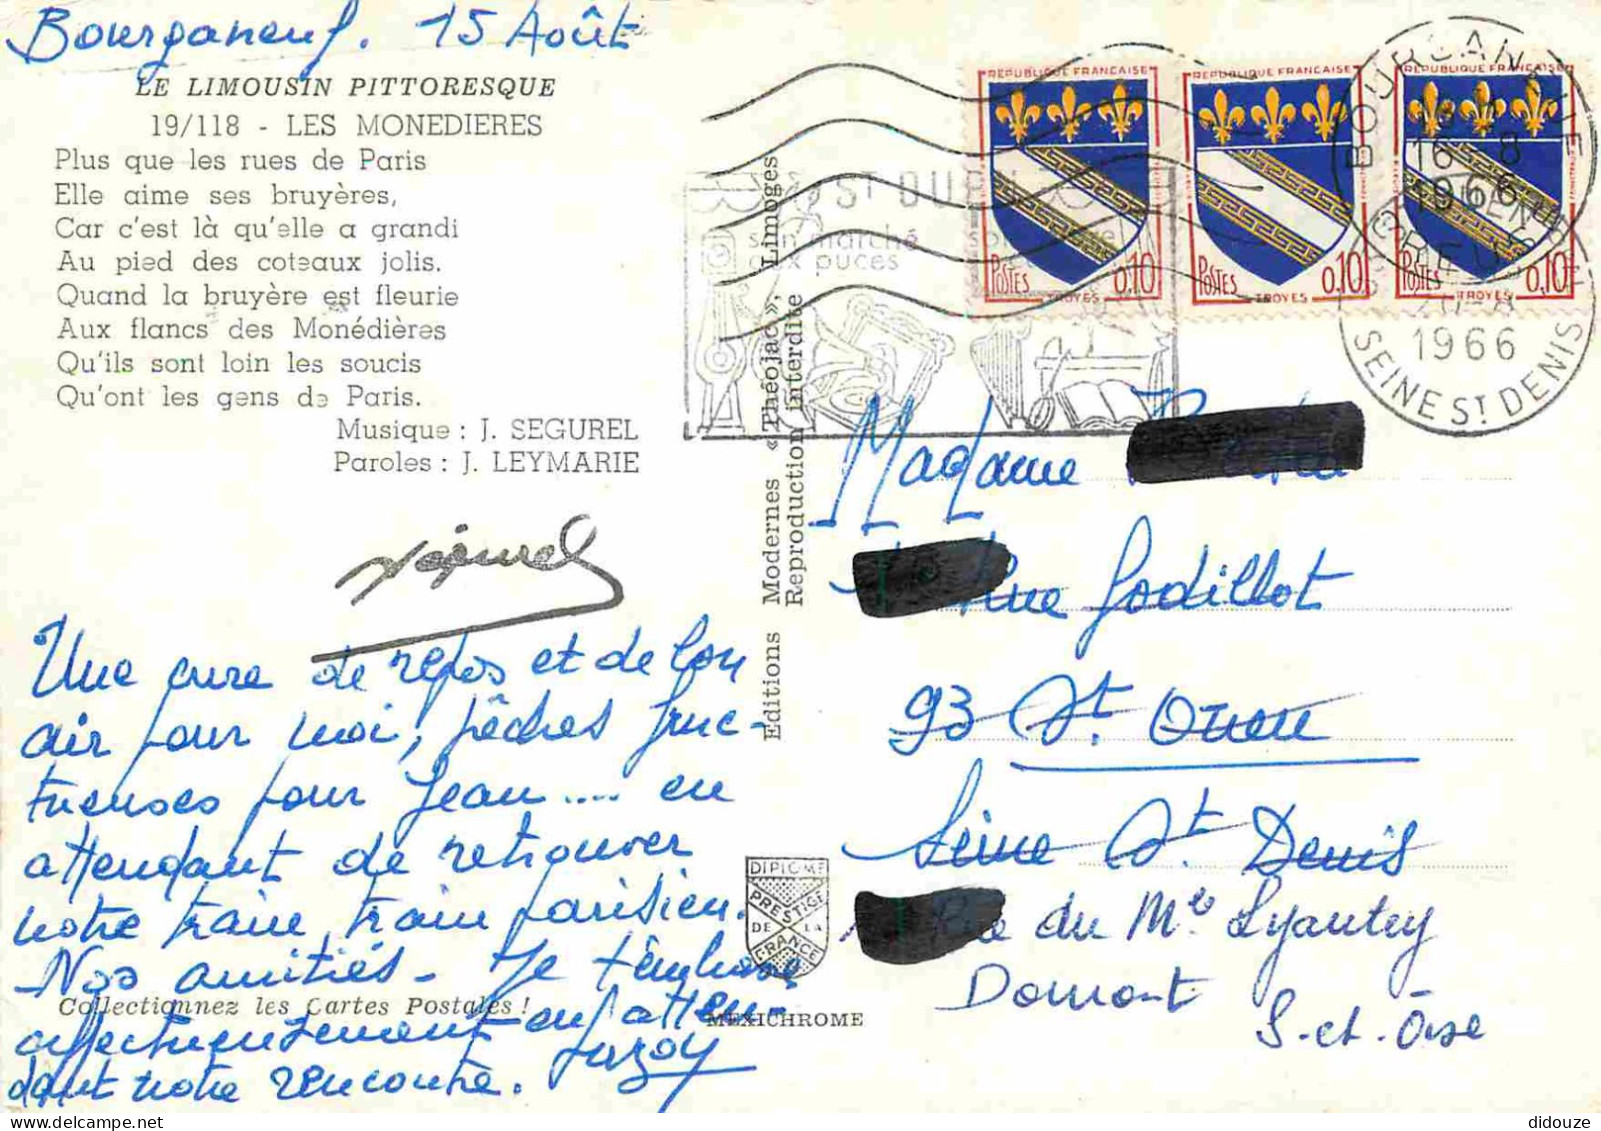 Bourganeuf. 15 Août
LE LIMOUSIN PITTORESQUE
19/118 - LES MONEDIERES
Plus que les rues de Paris
Elle aime ses bruyères,
Car c'est là qu'elle a grandi
Au pied des coteaux jolis.
Quand la bruyère est fleurie
Aux flancs des Monédières
Qu'ils sont loin les soucis
Qu'ont les gens de Paris.
Musique : J. SEGUREL
Paroles : J. LEYMARIE
Segurel
Une cure de repos et de bon
air pour moi, pêches fruc-
tueuses pour Jean .... en
attendant de retrouver
notre train train parisien.
Nos amitiés - Je t'embrasse
affectueusement en atten-
dant notre rencontre.
Collectionnez les Cartes Postales !
Editions Modernes « Théojac », Limoges
Reproduction interdite
DIPLOME
PRESTIGE
DE LA
FRANCE
MEXICHROME
ST OUEN
son marché
aux puces
REPUBLIQUE FRANÇAISE
POSTES 0,10
TROYES
REPUBLIQUE FRANÇAISE
POSTES 0,10
TROYES
REPUBLIQUE FRANÇAISE
POSTES 0,10
TROYES
BOURGANEUF
16 - 8
1966
CREUSE
1966
SEINE ST DENIS
Madame
Rue Godillot
93 St. Ouen
Seine St. Denis
Rue du Mal Lyautey
Domont
S.-et-Oise
didouze